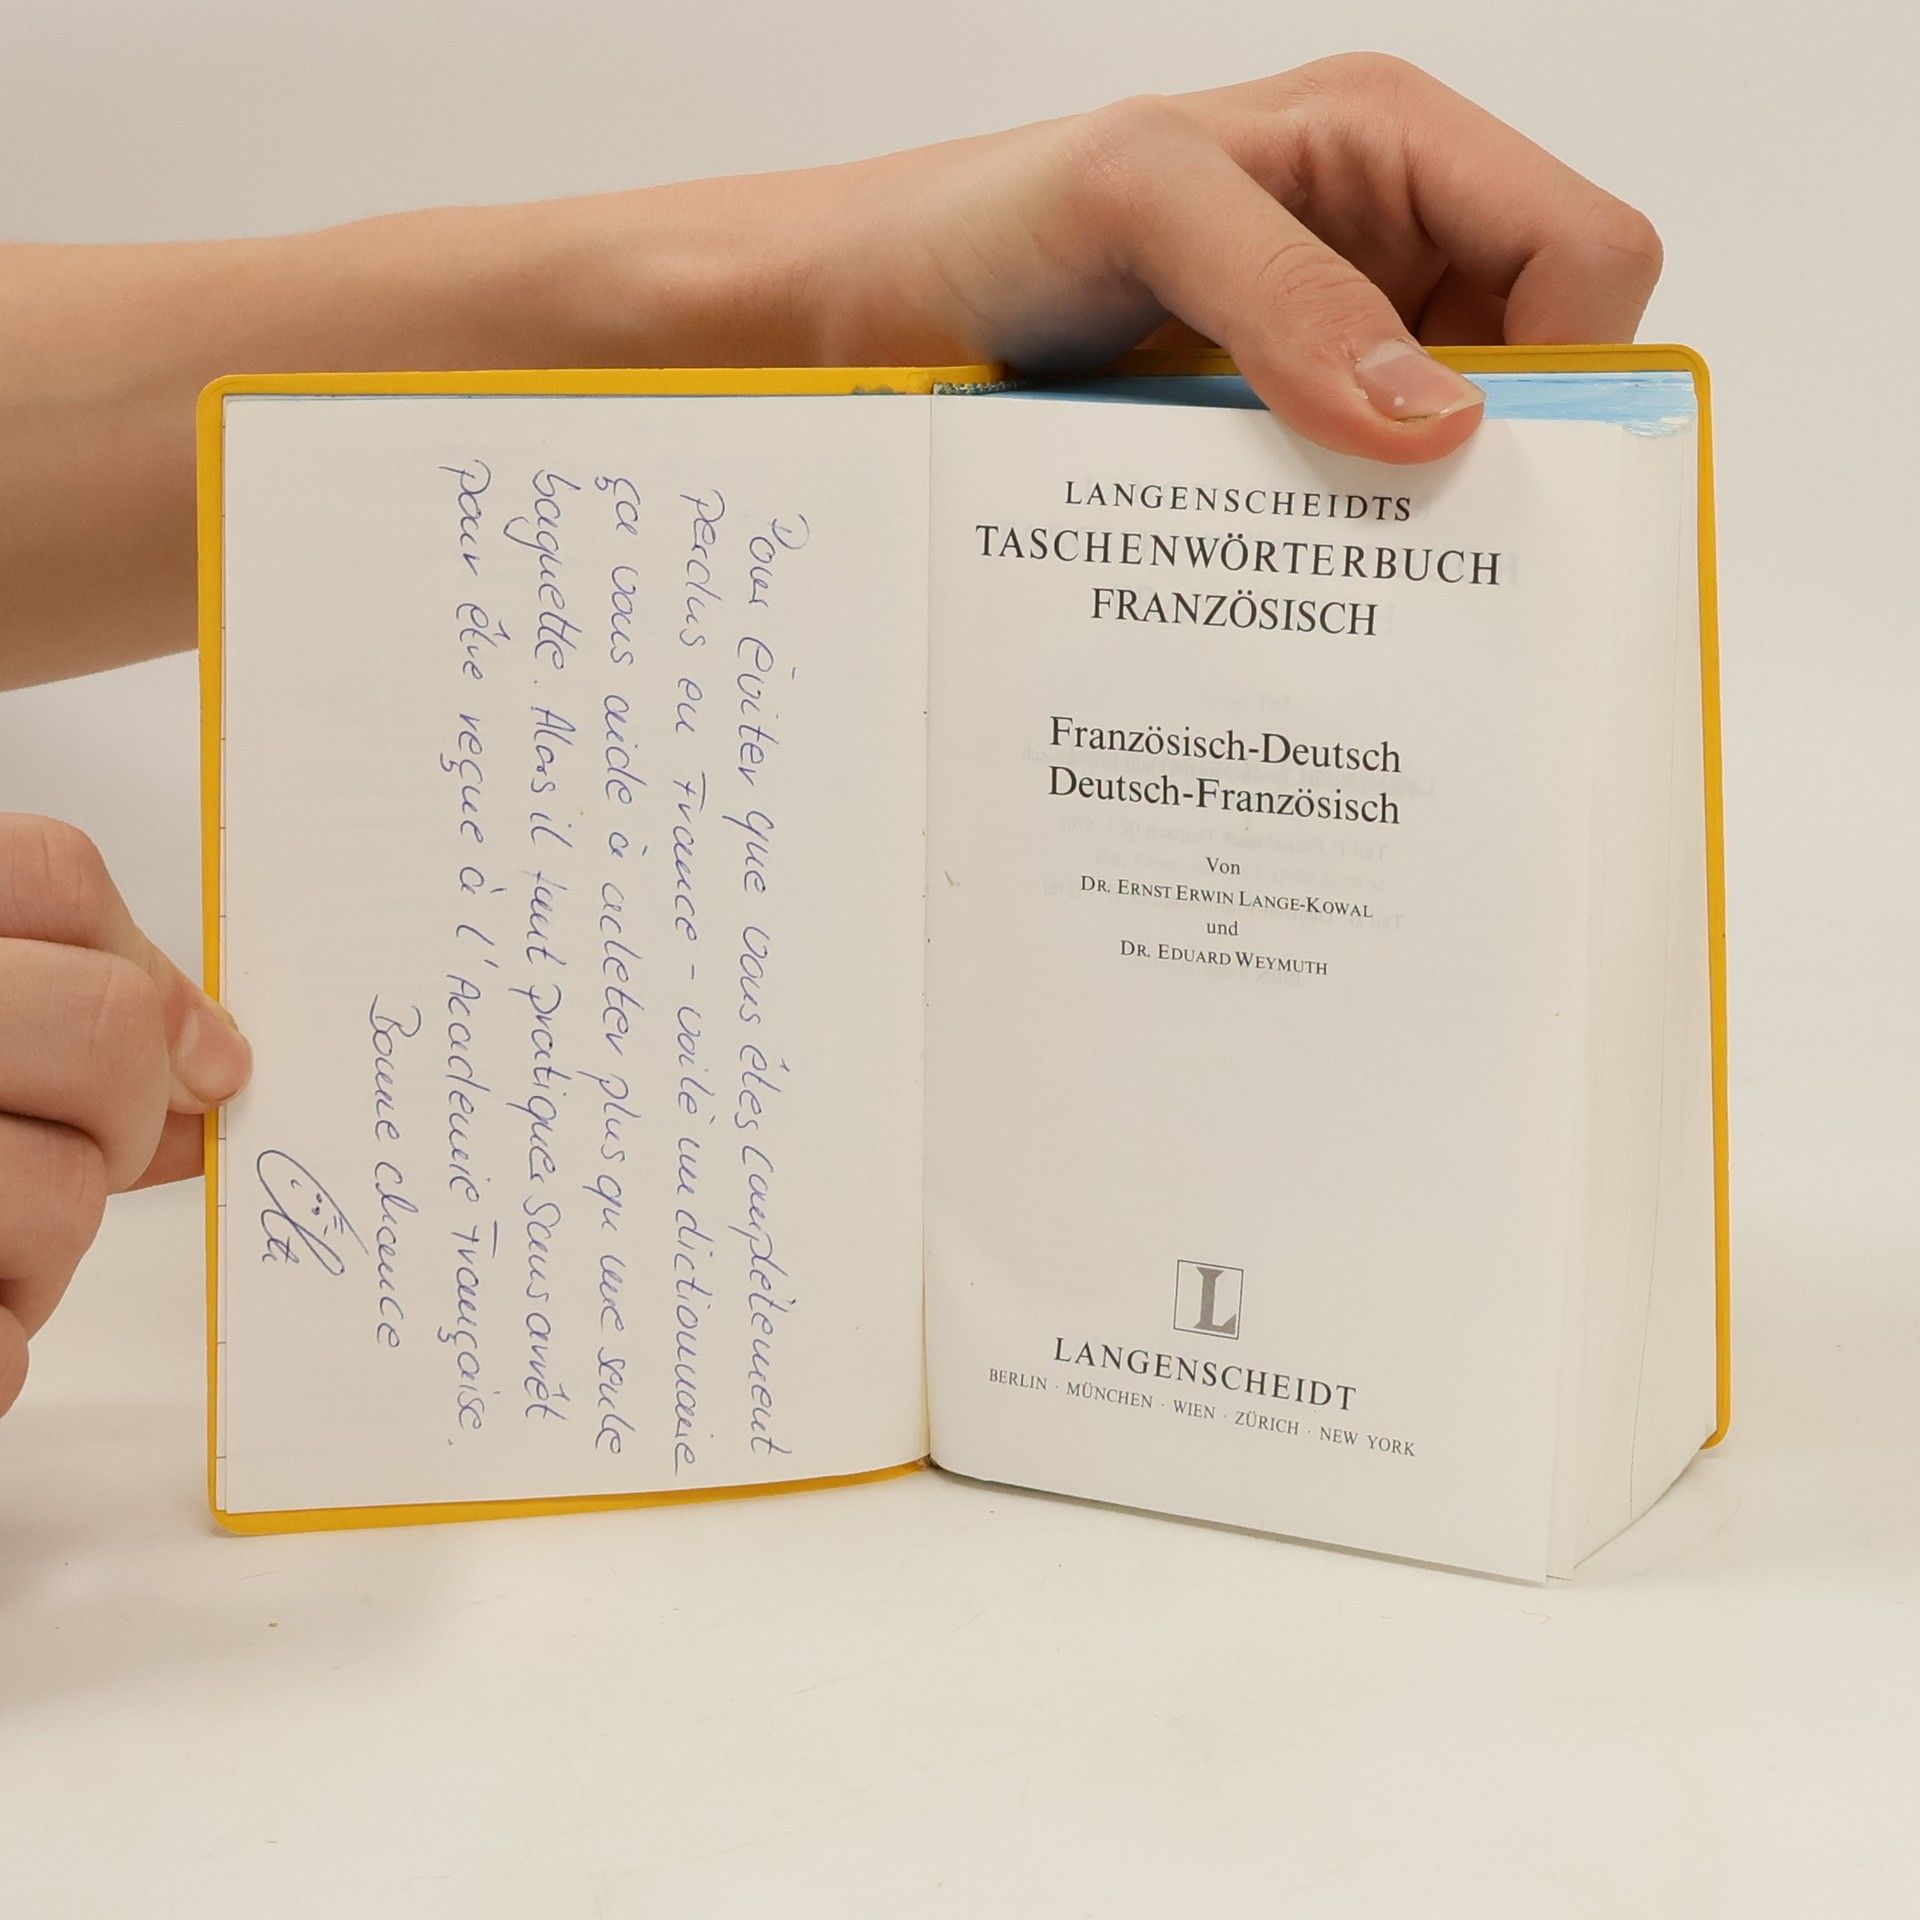 Pour éviter que vous êtes complètement
perdus en France - voilà un dictionnaire
ça vous aide à acheter plus qu'une seule
baguette. Alors il faut pratiquer sans arrêt
pour être reçue à l'Academie Française.
Bonne chance
LANGENSCHEIDTS
TASCHENWÖRTERBUCH
FRANZÖSISCH
Französisch-Deutsch
Deutsch-Französisch
Von
DR. ERNST ERWIN LANGE-KOWAL
und
DR. EDUARD WEYMUTH
L
LANGENSCHEIDT
BERLIN · MÜNCHEN · WIEN · ZÜRICH · NEW YORK